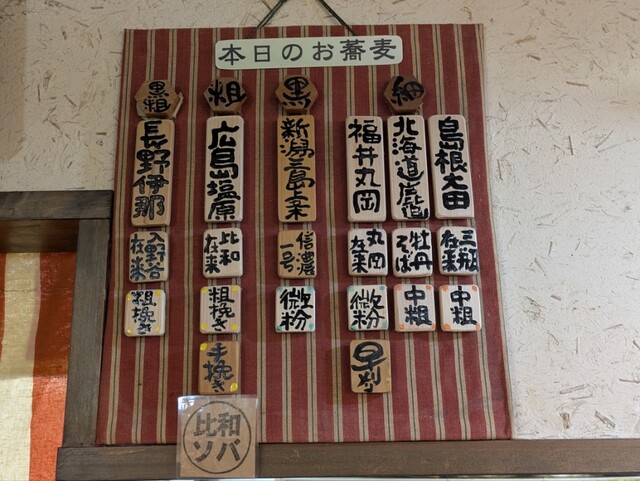 本日のお蕎麦
島根大田
三瓶
在来
中粗
細
北海道鹿追
牡丹
そば
中粗
福井丸岡
丸岡
在来
微粉
早刈
黒
新潟三島
信濃
一号
微粉
粗
広島塩原
比和
在来
粗挽き
手挽き
黒粗
長野伊那
入野谷
在来
粗挽き
比和
ソバ